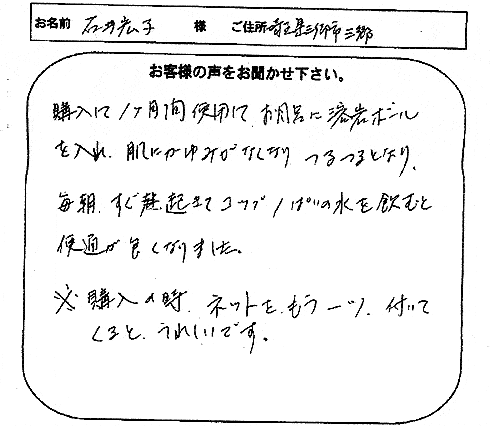 お名前 石井宏子 様 ご住所 埼玉県三郷市三郷
お客様の声をお聞かせ下さい。
購入して1ヶ月間使用して、お風呂に溶岩ボール
を入れ、肌にかゆみがなくなり つるつるとなり、
毎朝、すぐ起きてコップ1ぱいの水を飲むと
便通が良くなりました。
※購入の時、ネットを、もう一つ、付いて
くると、うれしいです。